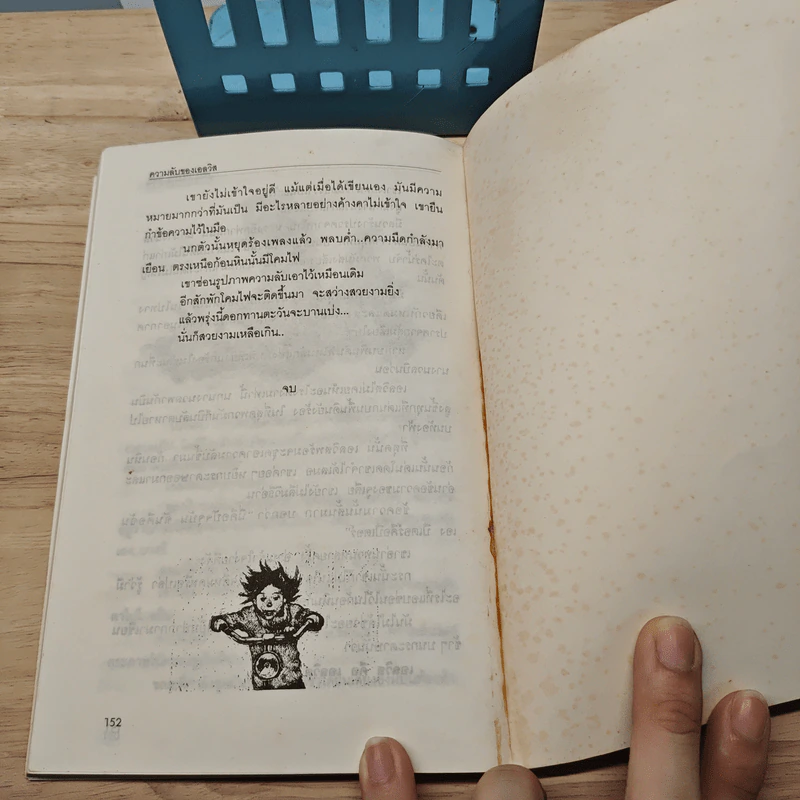 ความลับของเอลวิส
เขายังไม่เข้าใจอยู่ดี แม้แต่เมื่อได้เขียนเอง มันมีความ
หมายมากกว่าที่มันเป็น มีอะไรหลายอย่างค้างคาไม่เข้าใจ เขายืน
กำข้อความไว้ในมือ
นกตัวนั้นหยุดร้องเพลงแล้ว พลบค่ำ..ความมืดกำลังมา
เยือน ตรงเหนือก้อนหินนั้นมีโคมไฟ
เขาซ่อนรูปภาพความลับเอาไว้เหมือนเดิม
อีกสักพักโคมไฟจะติดขึ้นมา จะสว่างสวยงามยิ่ง
แล้วพรุ่งนี้ดอกทานตะวันจะบานเบ่ง...
นั่นก็สวยงามเหลือเกิน..
จบ
152